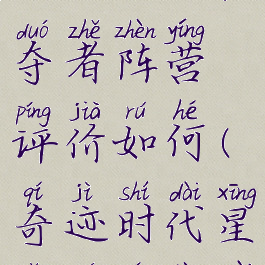 duó zhě zhèn yíng
夺者阵营
píng jià rú hé
评价如何(
qí jì shí dài xīng
奇迹时代星